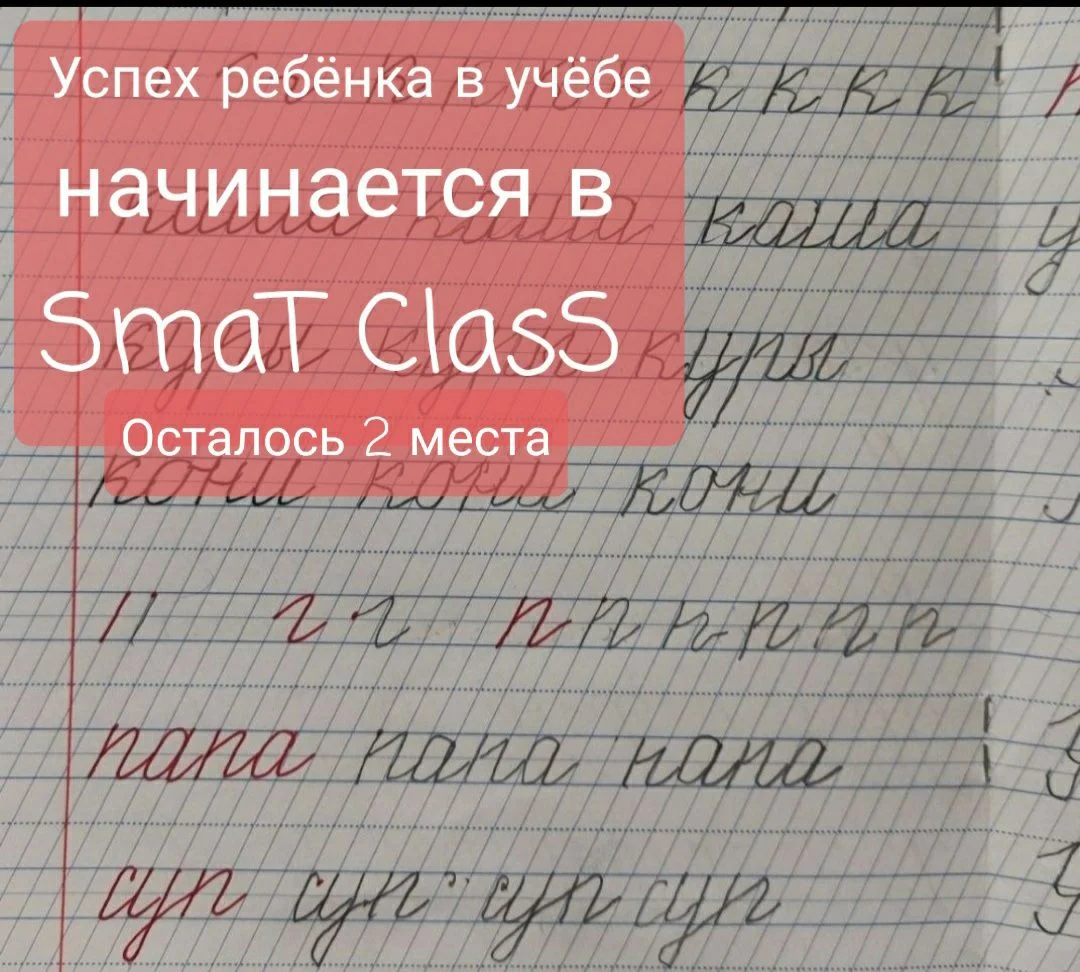 Успех ребёнка в учёбе
к к к к
начинается в
каша каша каша
SmaT ClasS
куры куры куры
Осталось 2 места
кони кони кони
г г п п п п п п
папа папа папа
суп суп суп суп